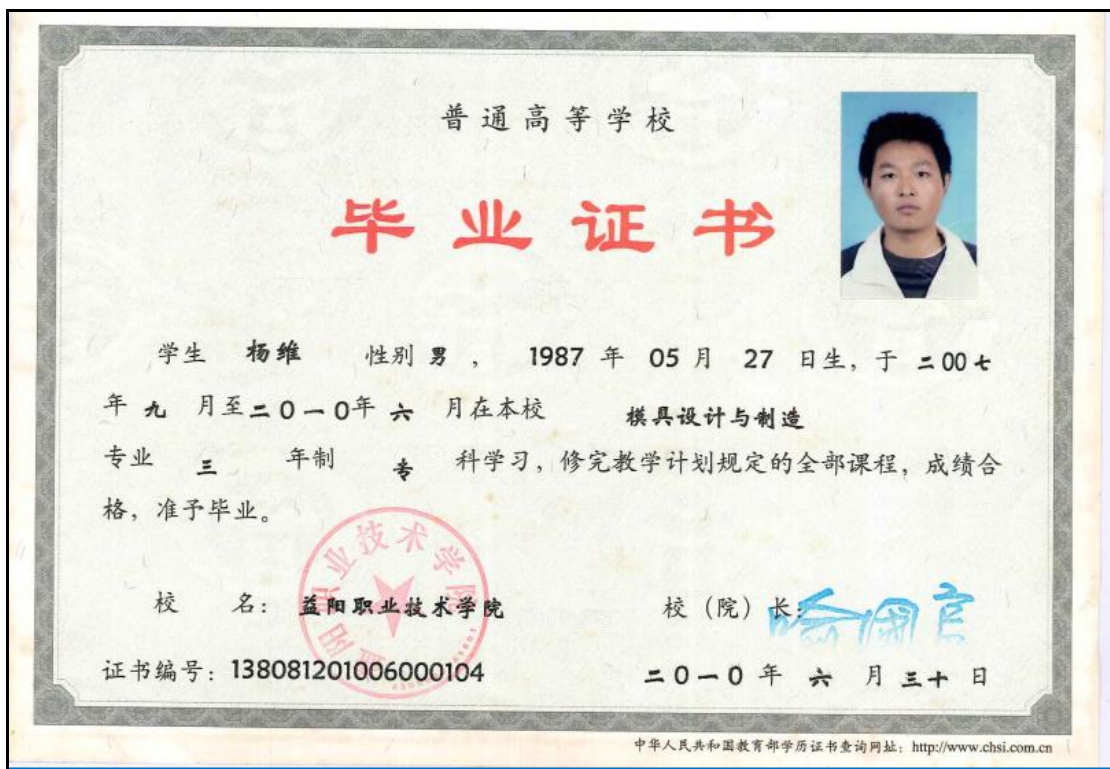 普通高等学校
毕业证书
学生 杨维 性别 男 , 1987 年 05 月 27 日生, 于 二00七
年 九 月至二0一0年 六 月在本校 模具设计与制造
专业 三 年制 专 科学习, 修完教学计划规定的全部课程, 成绩合
格, 准予毕业。
益阳职业技术学院
校 名: 益阳职业技术学院 校 (院) 长:
证书编号: 138081201006000104 二0一0 年 六 月 三十 日
中华人民共和国教育部学历证书查询网址: http://www.chsi.com.cn